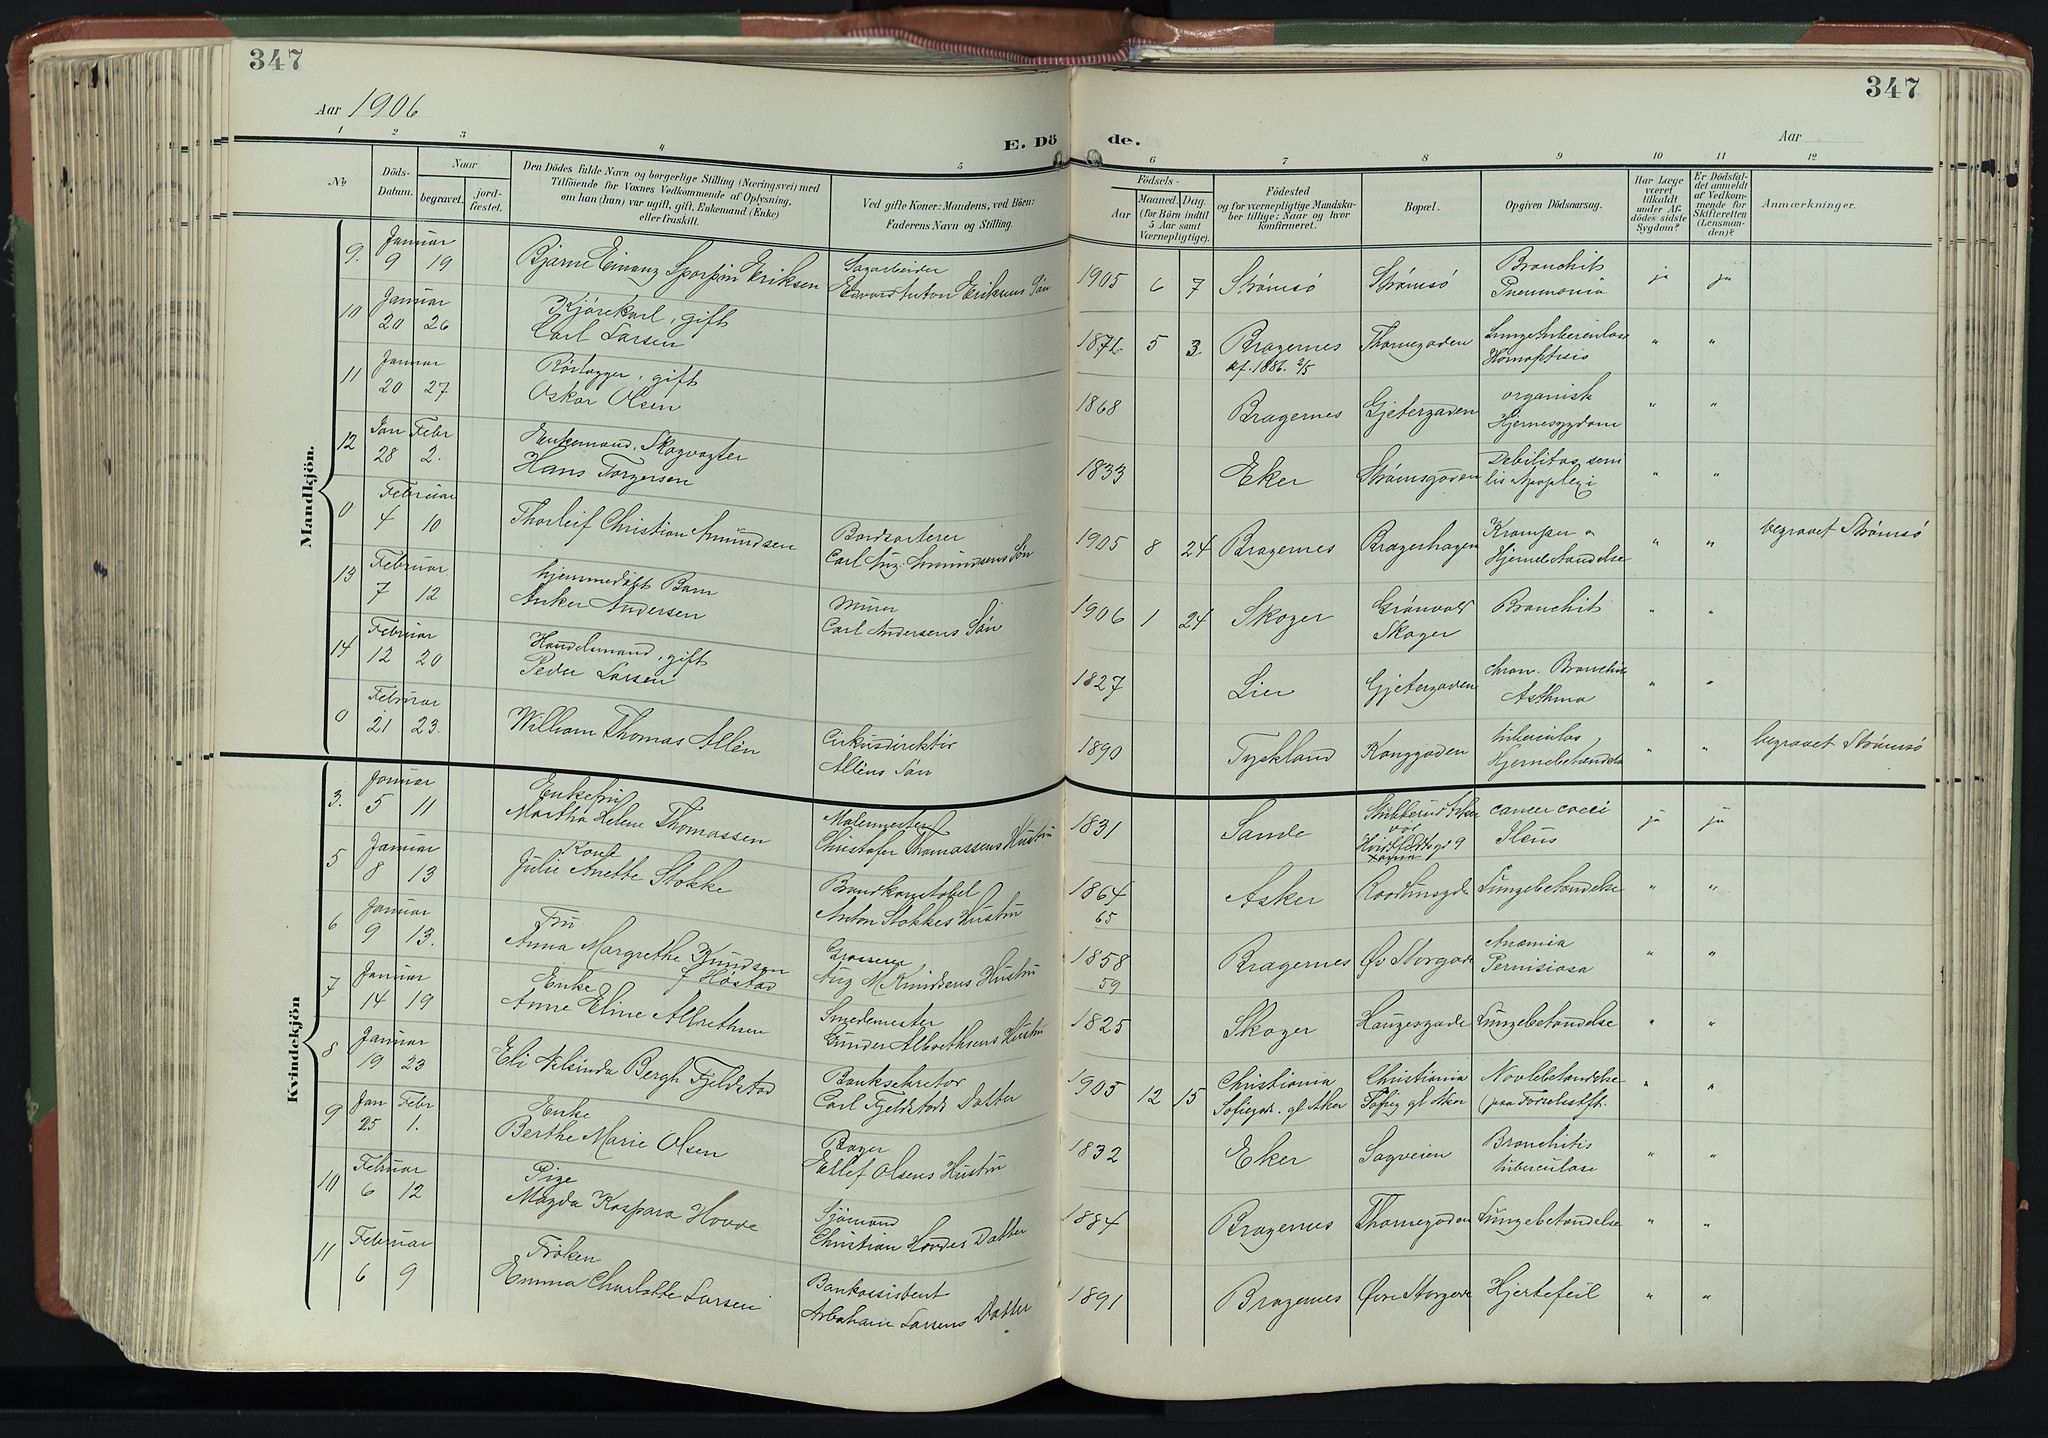 347
347
Aar 1906
E. Dö de.
Aar
1 2 3 4 5 6 7 8 9 10 11 12
No
Döds-Datum.
Naar
begravet.
jordfæstet.
Den Dödes fulde Navn og borgerlige Stilling (Næringsvei) med
Tilföiende for Voxnes Vedkommende af Oplysning,
om han (hun) var ugift, gift, Enkemand (Enke)
eller fraskilt.
Ved gifte Koner: Mandens, ved Börn:
Faderens Navn og Stilling.
Födsels-
Aar
Maaned. Dag.
(for Börn indtil
5 Aar samt
Værnepligtige).
Födested
og for værnepligtige Mandskaber tillige: Naar og hvor
konfirmeret.
Bopæl.
Opgiven Dödsaarsag.
Har Læge
været
tilkaldt
under Afdödes sidste
Sygdom?
Er Dödsfaldet anmeldt
af Vedkommende for
Skifteretten
(Lensmanden)?
Anmærkninger.
Mandkjön.
9. Januar 9 19 Bjarne Einanz Eriksen Sagarbeider
Edvard Anton Eriksens Søn 1905 6 7 Strømsø Strømsø Bronchit
Pneumonia ja ja
10 Januar 20 26 Kjørekarl, gift
Carl Larsen 1872 5 3. Bragernes
kf. 1886. 2/5 Thornegaden Lungetuberculose
Hæmoptisis " "
11 Januar 20 27 Rörlægger, gift
Oskar Olsen 1868 Bragernes Gjetergaden organisk
Hjernesygdom " "
12 Jan 28 Febr 2. Enkemand, Skogvogter
Hans Torgersen 1833 Eker Strømsgaden Debilitas senilis Apoplexi " "
0 Februar 4 10 Thorleif Christian Amundsen Bordsorterer
Carl Aug. Amundsens Søn 1905 8 24 Bragernes Bragerhagen Kramper o
Hjernebetændelse " " begravet Strømsø
13 Februar 7 12 hjemmedøbt Barn
Anker Andersen Murer
Carl Andersens Søn 1906 1 24 Skoger Grønvold
Skoger Bronchit " "
14 Februar 12 20 Handelsmand, gift
Peder Larsen 1827 Lier Gjetergaden chron. Bronchit
Asthma " "
0 Februar 21 23. William Thomas Allén Cirkusdirektör
Alléns Søn 1890 Tyskland Konggaden tuberculos
Hjernebetændelse " " begravet Strømsø
Kvindekjön
3. Januar 5 11 Enkefru
Martha Helene Thomassen Malermester
Christofer Thomassens Hustru 1831 Sande cancer coeci
Ileus ja ja
5 Januar 8 13 Kone
Julie Anette Stokke Brandkonstabel
Anton Stokkes Hustru 1864
65 Asker Lungebetændelse " "
6 Januar 9 13. Fru
Anna Margrethe Knudsen
f Høstad Grosserer
Aug M Knudsens Hustru 1858
59 Bragernes Øv Storgade Anæmia
Pernisiosa " "
7 Januar 14 19 Enke
Anne Eline Albrethsen Smedemester
Gunder Albrethsens Hustru 1825 Skoger Haugesgade Lungebetændelse " "
8 Januar 19 23 Eli Nilsinda Bergh Fjeldstad Banksekretær
Carl Fjeldstads Datter 1905 12 15 Christiania
Sofiegd. gl Aker Christiania
Sofieg gl Aker Navlebetændelse " "
9 Jan 25 Febr 1. Enke
Berthe Marie Olsen Bager
Olsens Hustru 1832 Eker Sagveien Bronchitis
tuberculose " "
10 Februar 6 12 Pige
Magda Kaspara Hovde Sjømand
Christian Hovdes Datter 1884 Bragernes Thornegaden Lungebetændelse " "
11 Februar 6 9 Frøken
Emma Charlotte Larsen Bankassistent
Abraham Larsens Datter 1891 Bragernes Øvre Storgade Hjertefeil " "